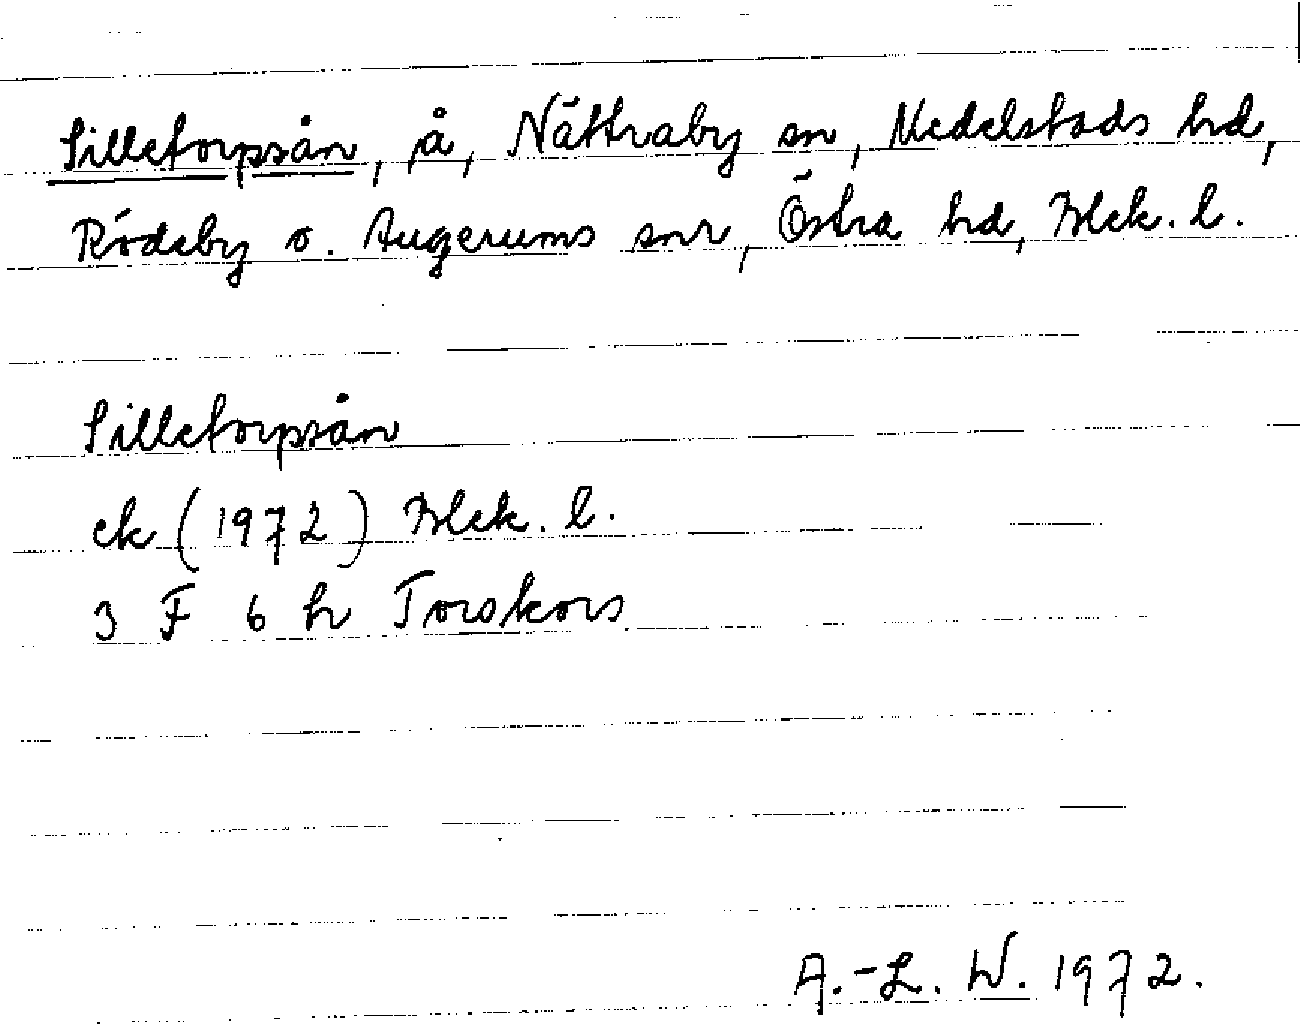 Silletorpsån, å, Nättraby sn, Medelstads hd,
Rödeby o. Augerums snr, Östra hd, Blek. l.
Silletorpsån
ek (1972) Blek. l.
3 F 6 h Torskors
A.-L. W. 1972.